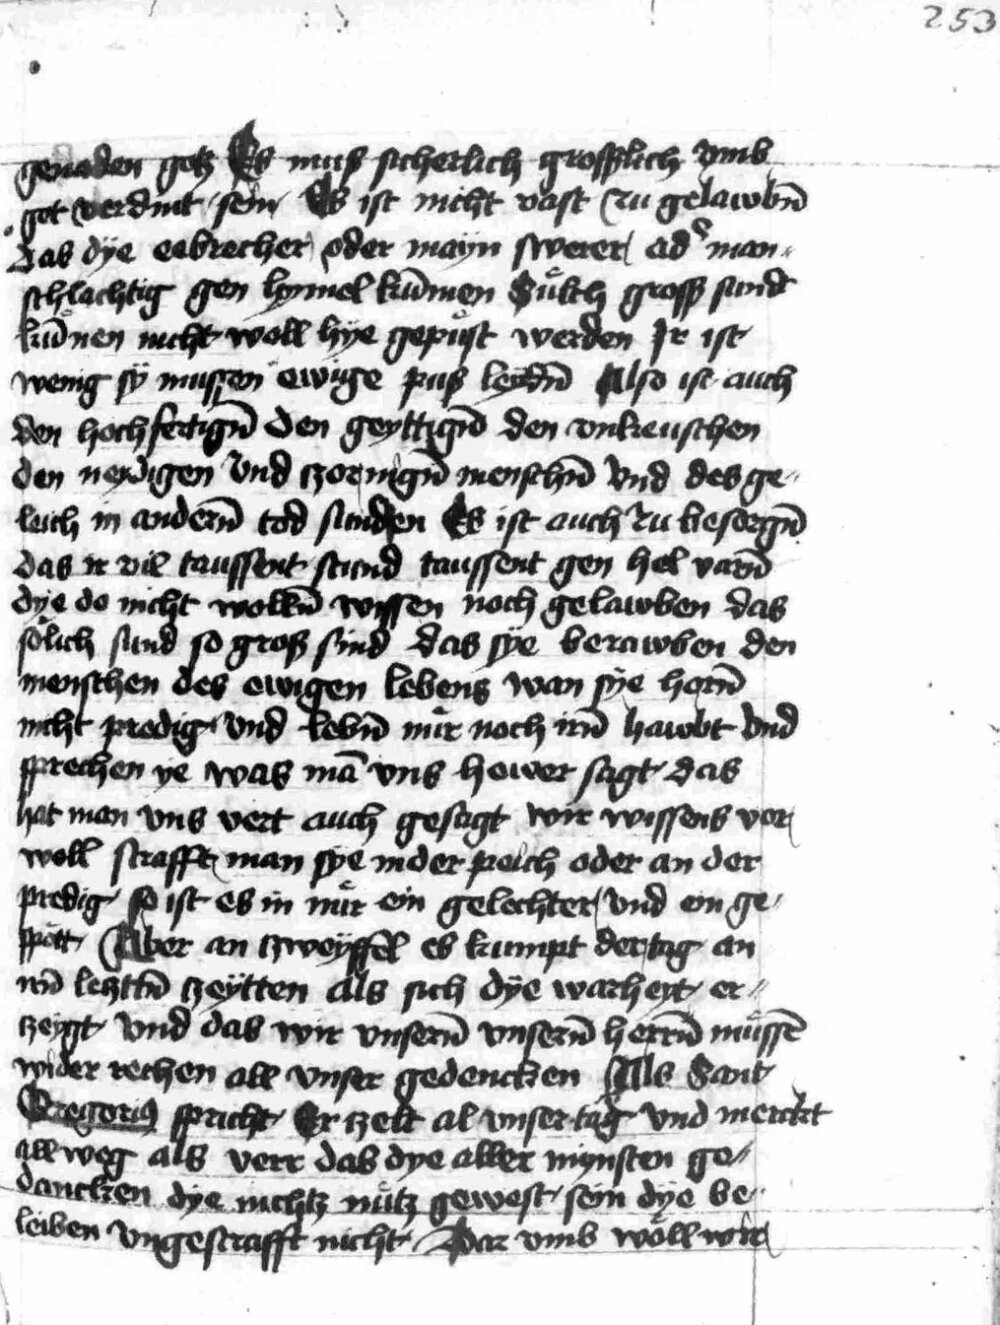 253
genaden gotz Es muß sicherlich groszlich vmb
got verdint sein Es ist nicht vast zu gelawbn̄
Das dÿe eebrecher oder mayn swerer ad᷑ man-
schlachtig gen hymel kūmen Sulch grosz sund
kūnen nicht woll hÿe gepust werden Ir ist
wenig sÿ mussen ewige puß leydn̄ Also ist auch
den hochfertign̄ den geyttign̄ den vnkeuschen
den neydigen vnd czornign̄ menschn̄ vnd des ge-
leich in andern̄ tod sunden Es ist auch zu besorgn̄
das ir vil taussent stund taussent gen hel varn̄
dÿe do nicht wolln̄ wissen noch gelawben das
sölich sund so groß sind das sÿe berawben den
menschen des ewigen lebens wan sÿe horn̄
nicht predig vnd lebn̄ nur noch irn̄ hawbt vnd
sprechen ye was mā vns hewer sagt das
hat man vns vert auch gesagt wir wissens vor
woll strafft man sÿe in der peich oder an der
predig so ist es in nur ein gelechter vnd ein ge-
spött Aber an zweyffel es kumpt der tag an
letztn̄ czeÿtten als sich dÿe warheyt er-
czeygt vnd das wir vnsern̄ vnsern̄ herrn̄ müssē
wider rechen all vnser gedencken Als Sant
Gregorius spricht Er czelt al vnser tag vnd merckt
all weg als verr das dye aller mynsten ge-
dancken dÿe nichtz nütz gewest sein dÿe be-
leiben vngestrafft nicht Dar vmb wöll wir